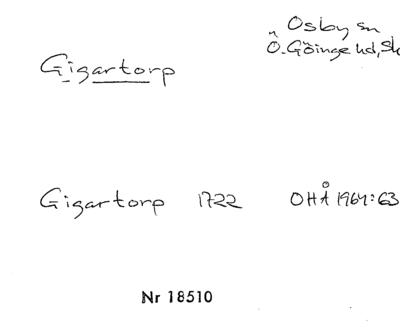 Osby sn
Gigartorp
Ö. Göinge hd, Sk
Gigartorp 1722 OHÅ 1964:63
Nr 18510